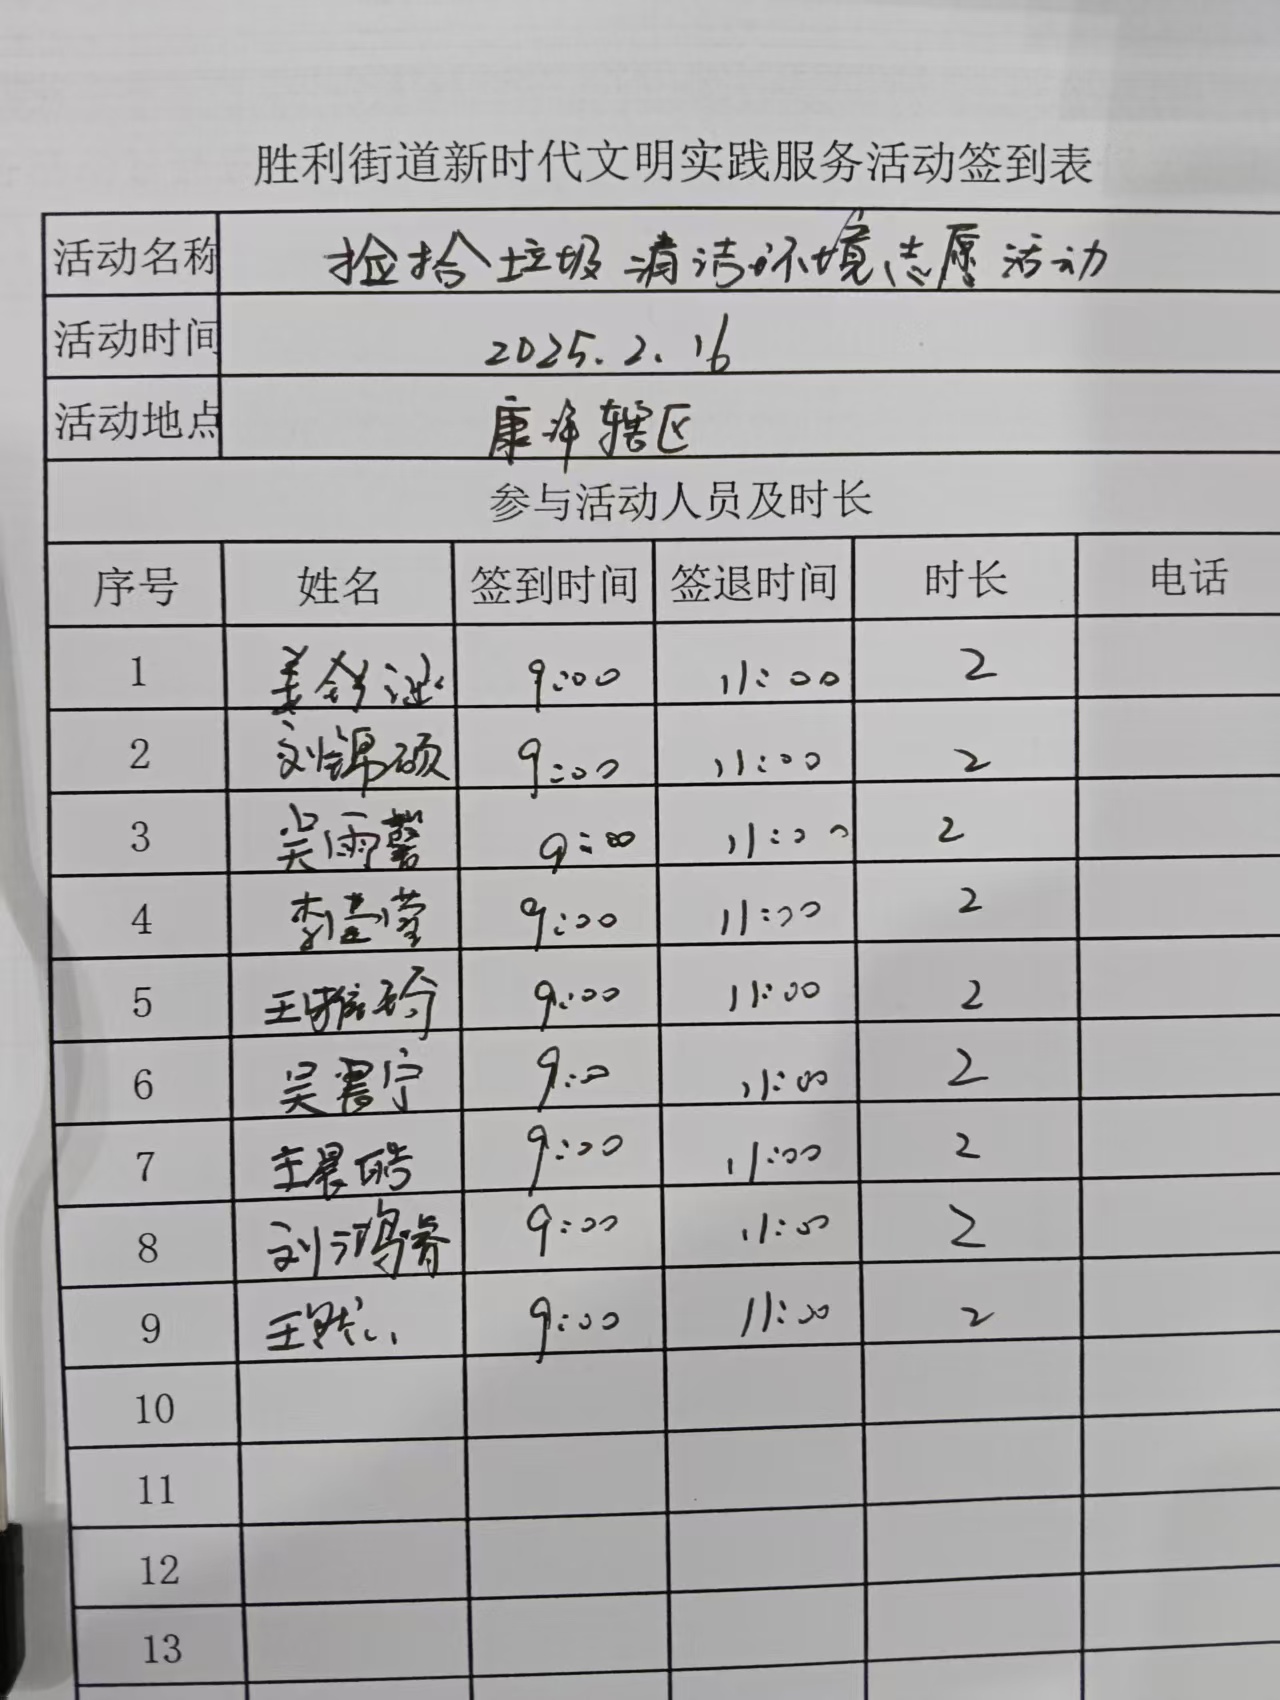 胜利街道新时代文明实践服务活动签到表
活动名称 捡拾垃圾 清洁环境志愿活动
活动时间 2025.2.16
活动地点 康泽辖区
参与活动人员及时长
序号 姓名 签到时间 签退时间 时长 电话
1 姜 9:00 11:00 2
2 刘锦硕 9:00 11:00 2
3 吴雨馨 9:00 11:00 2
4 李莹 9:00 11:00 2
5 王雅 9:00 11:00 2
6 吴宁 9:00 11:00 2
7 王晨皓 9:00 11:00 2
8 刘鸿睿 9:00 11:00 2
9 王 9:00 11:00 2
10
11
12
13